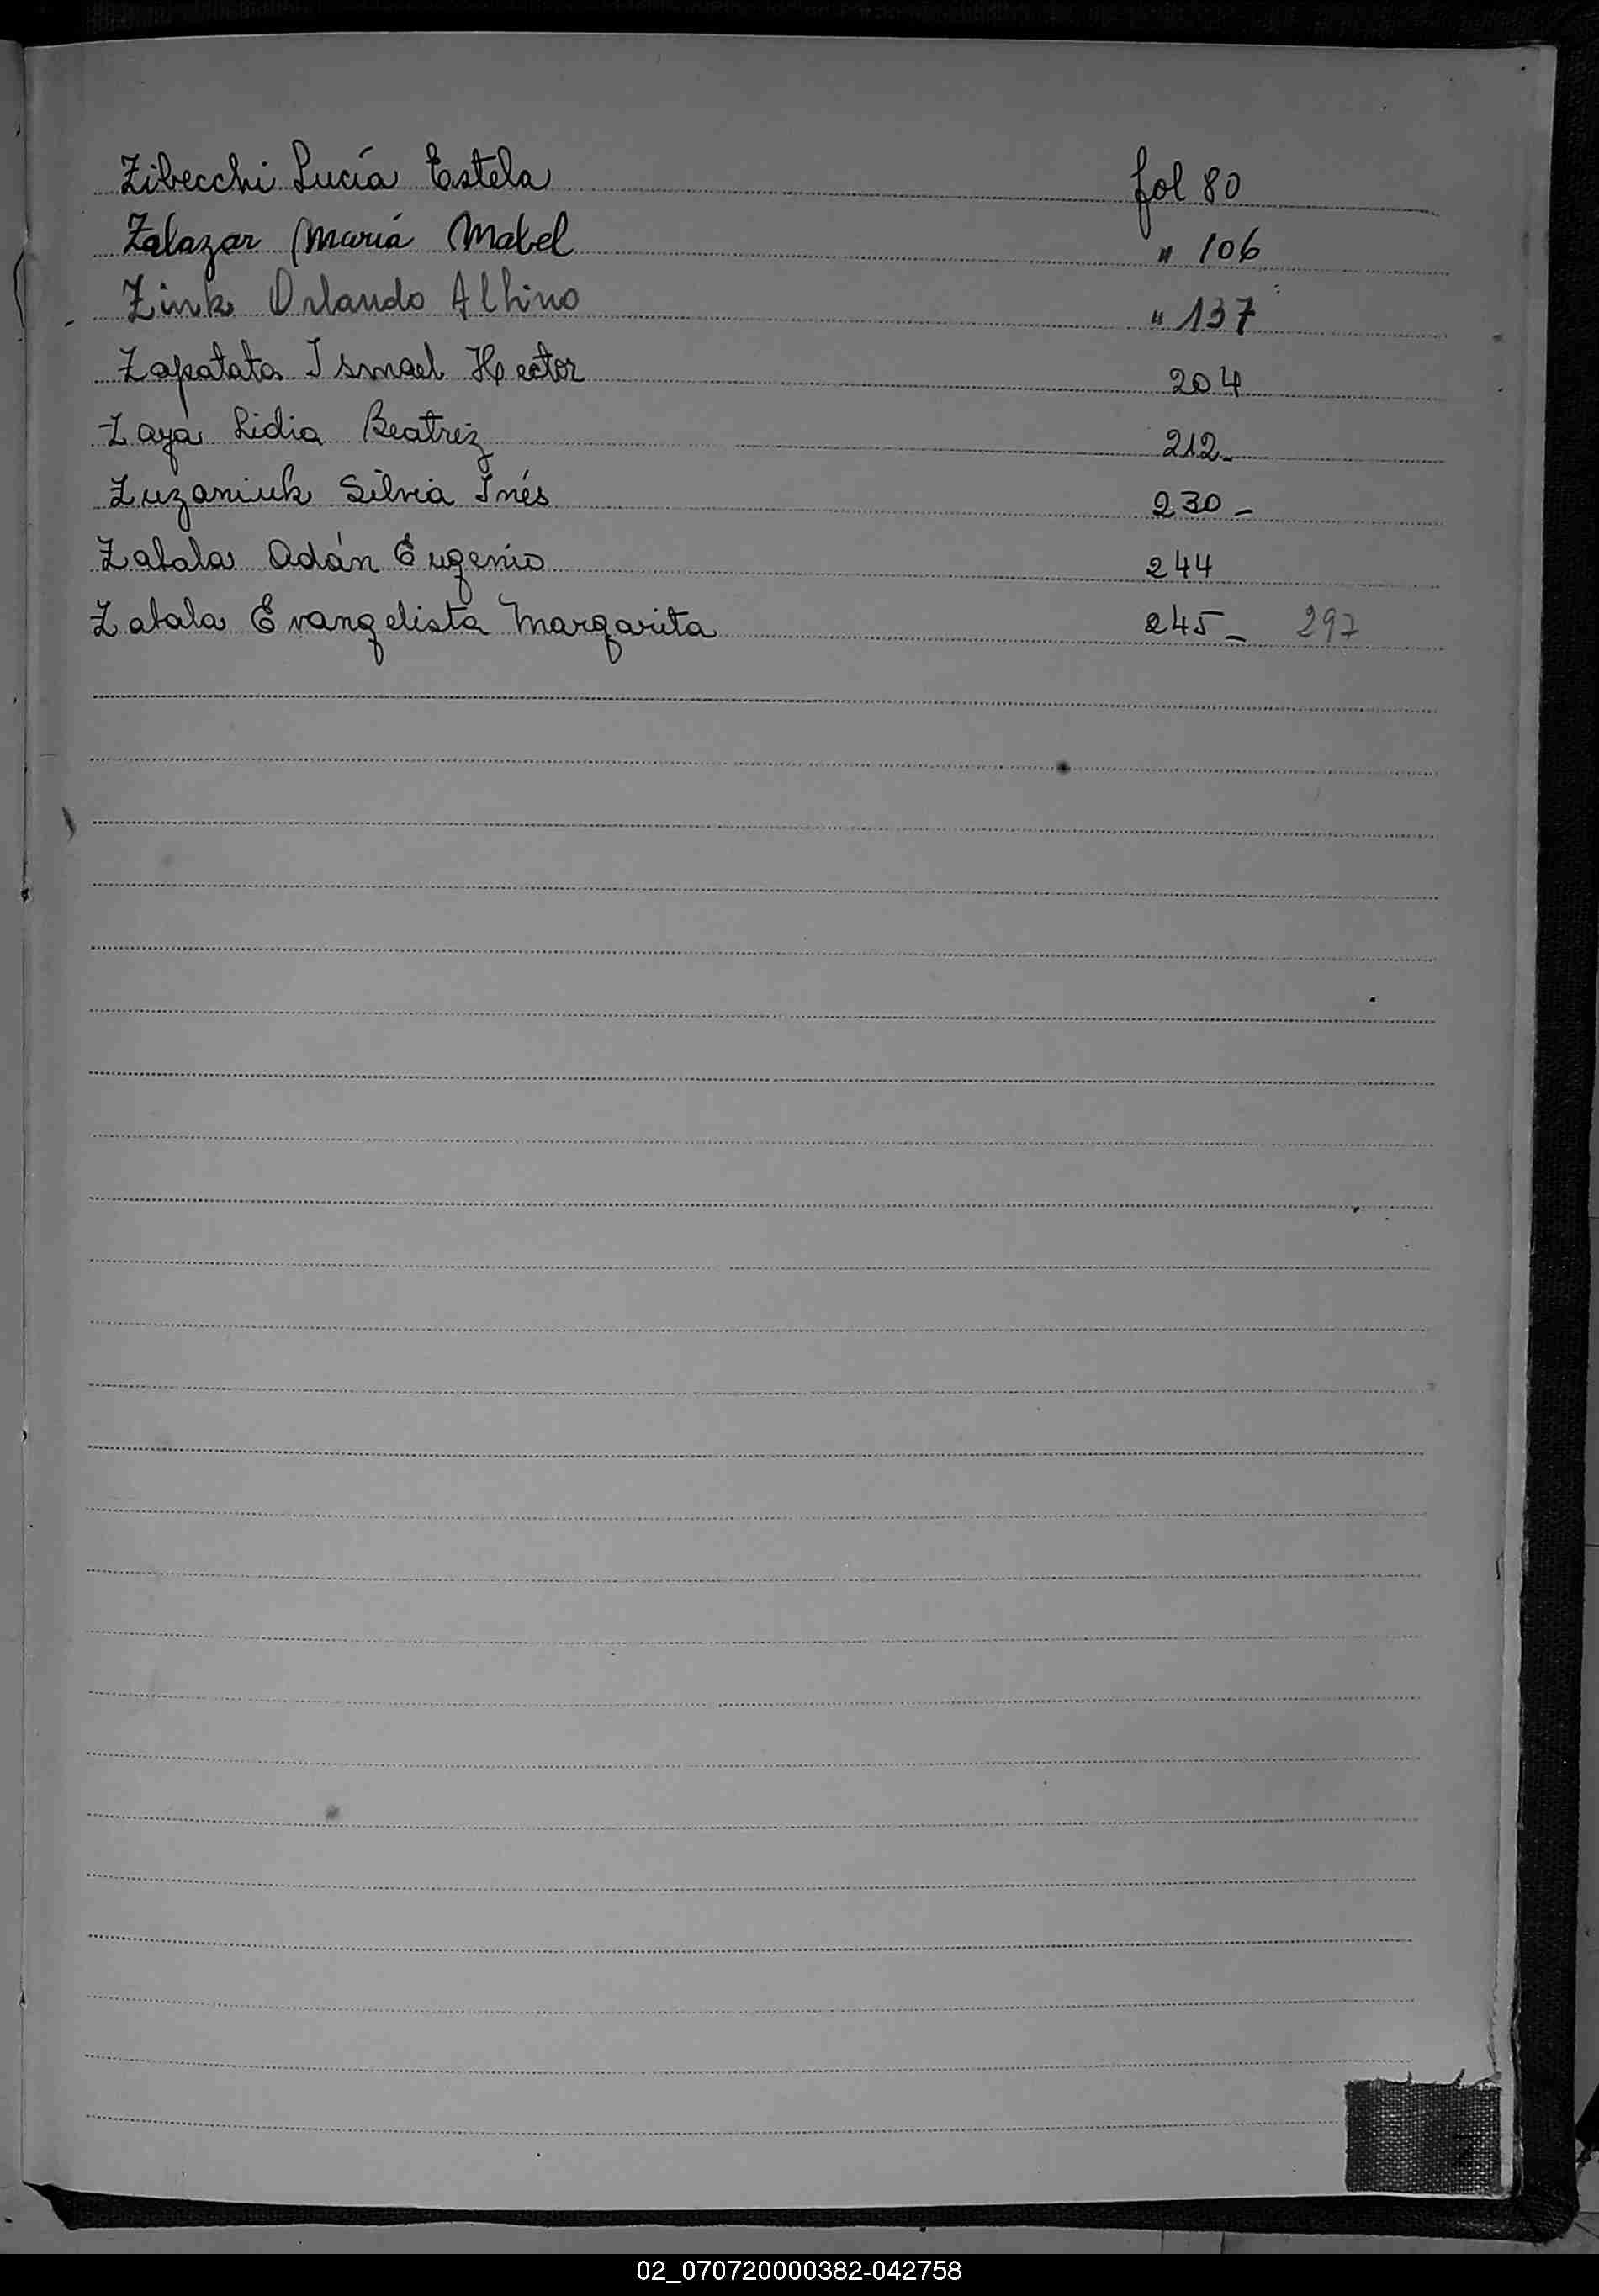 Zibecchi Lucía Estela fol 80
Zalazar María Mabel " 106
Zink Orlando Albino " 137
Zapatata Ismael Hector 204
Zaya Lidia Beatriz 212-
Zuzaniuk Silvia Inés 230-
Zabala Adán Eugenio 244
Zabala Evangelista Margarita 245- 297
Z
02_070720000382-042758